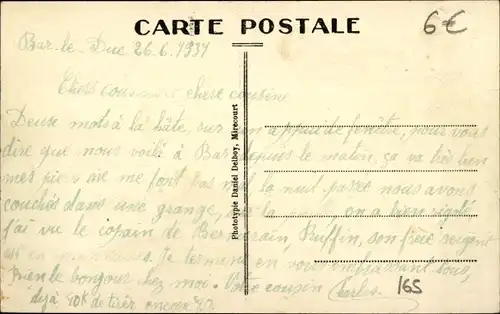 CARTE POSTALE
6€
Bar-le-Duc 26.6.1931
Chers cousins et chère cousine
Deux mots à la hâte, sur un appui de fenêtre, pour vous
dire que nous voilà à Bar depuis le matin, ça va très bien
mes pieds ne me font pas mal la nuit passée nous avons
couchés dans une grange, on a bien rigolé
j'ai vu le copain de Ruffin, son frère
Je termine en vous embrassant tous,
bien le bonjour chez moi. Votre cousin Charles.
déjà 40k de tirés encore
Phototypie Daniel Delboy, Mirecourt
165